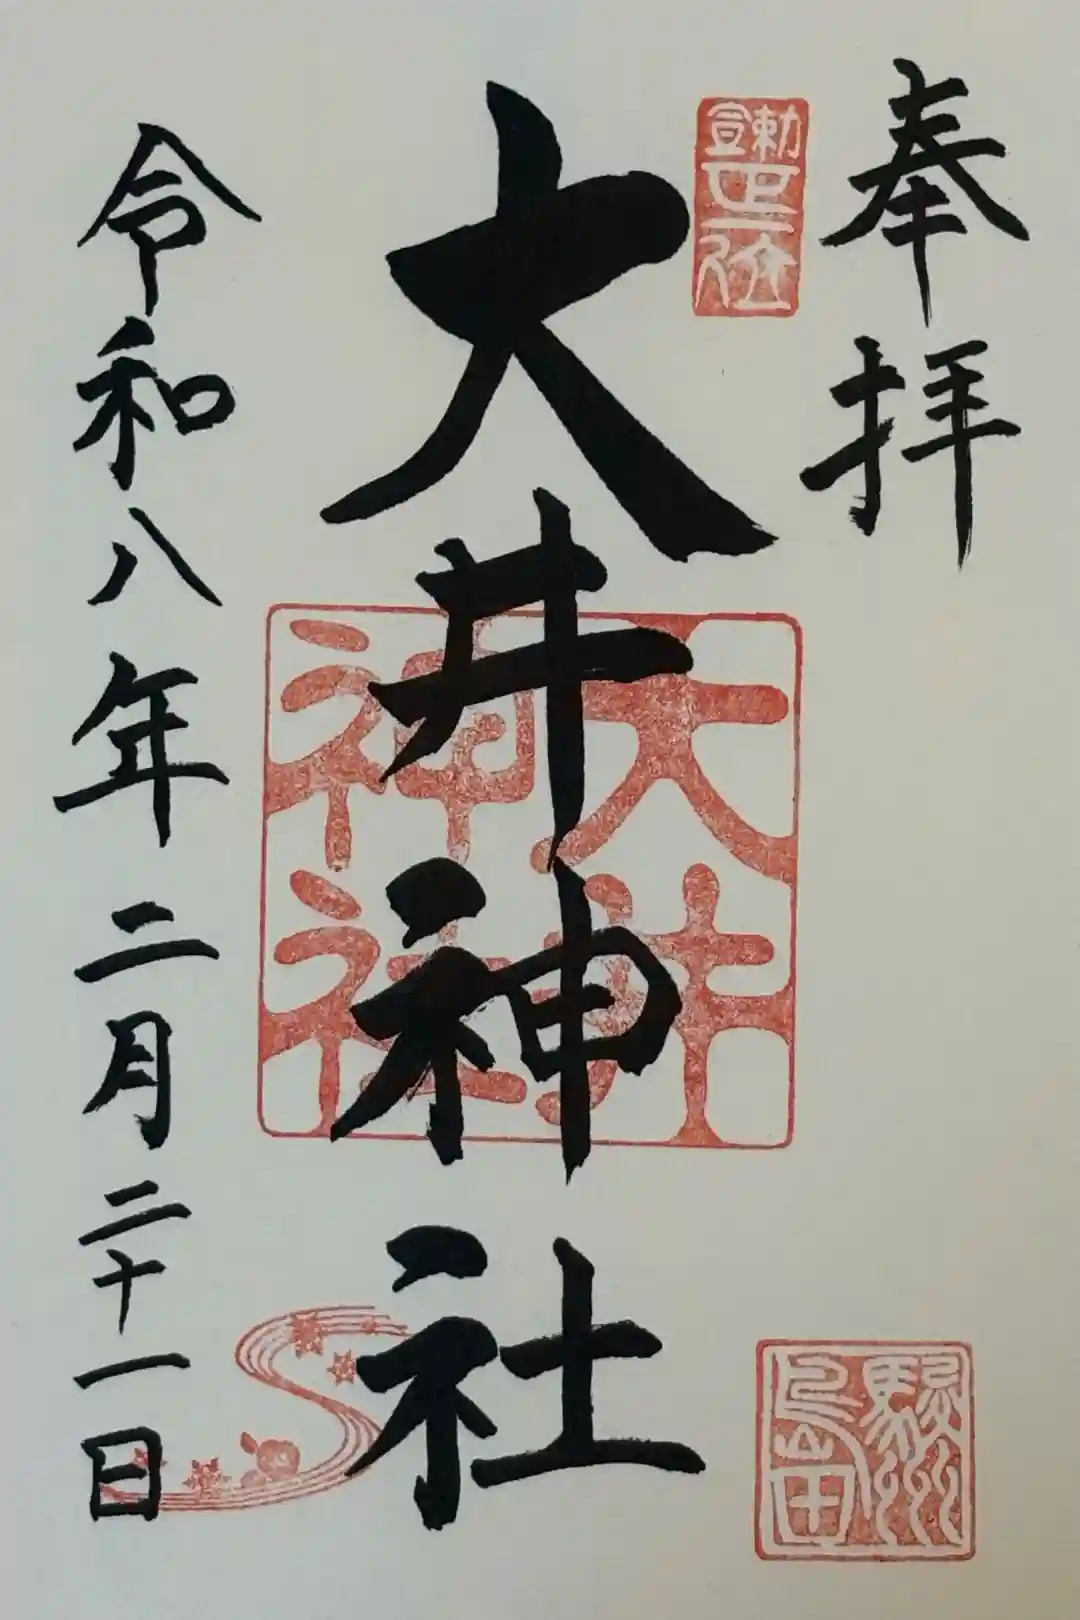 奉拝
勅宣正一位
大井神社
大井神社
駿州島田
令和八年二月二十一日